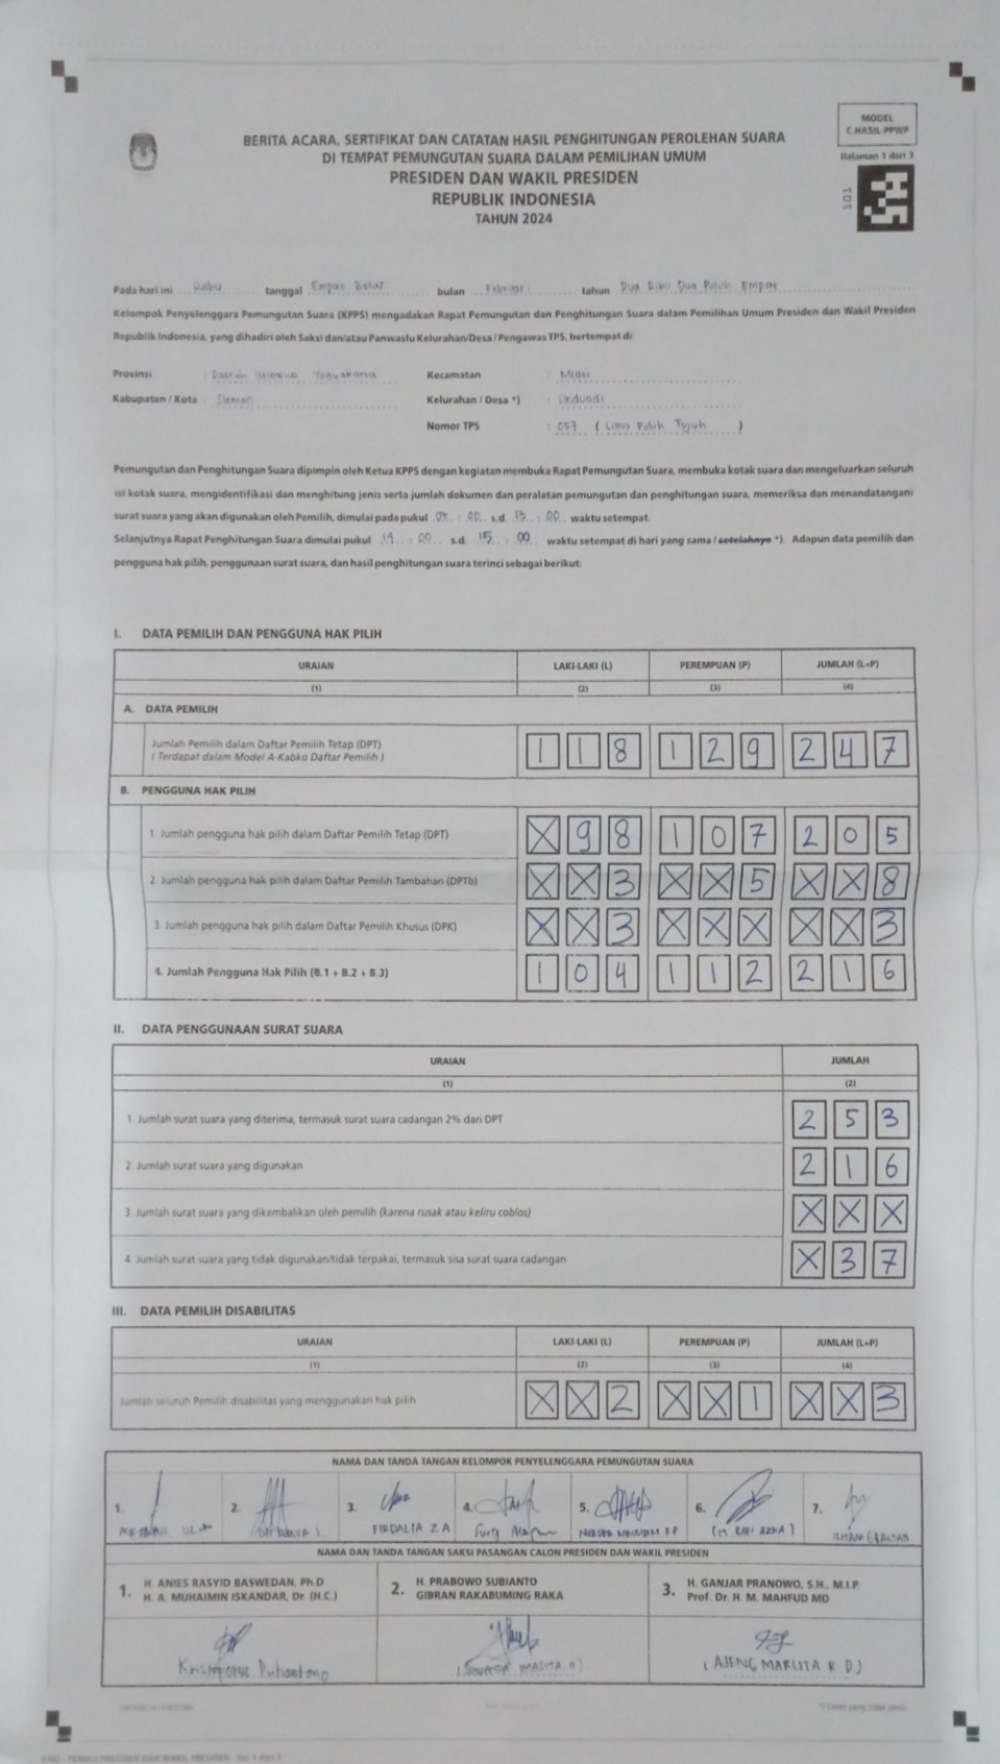 MODEL
C.HASIL-PPWP
Halaman 1 dari 3
101
BERITA ACARA, SERTIFIKAT DAN CATATAN HASIL PENGHITUNGAN PEROLEHAN SUARA
DI TEMPAT PEMUNGUTAN SUARA DALAM PEMILIHAN UMUM
PRESIDEN DAN WAKIL PRESIDEN
REPUBLIK INDONESIA
TAHUN 2024
Pada hari ini Rabu tanggal Empat Belas bulan Februari tahun Dua Ribu Dua Puluh Empat
Kelompok Penyelenggara Pemungutan Suara (KPPS) mengadakan Rapat Pemungutan dan Penghitungan Suara dalam Pemilihan Umum Presiden dan Wakil Presiden
Republik Indonesia, yang dihadiri oleh Saksi dan/atau Panwaslu Kelurahan/Desa / Pengawas TPS, bertempat di:
Provinsi : Daerah Istimewa Yogyakarta Kecamatan : Mlati
Kabupaten / Kota : Sleman Kelurahan / Desa *) : Sinduadi
Nomor TPS : 057 ( Lima Puluh Tujuh )
Pemungutan dan Penghitungan Suara dipimpin oleh Ketua KPPS dengan kegiatan membuka Rapat Pemungutan Suara, membuka kotak suara dan mengeluarkan seluruh
isi kotak suara, mengidentifikasi dan menghitung jenis serta jumlah dokumen dan peralatan pemungutan dan penghitungan suara, memeriksa dan menandatangani
surat suara yang akan digunakan oleh Pemilih, dimulai pada pukul : 00 s.d. 13 : 00 waktu setempat.
Selanjutnya Rapat Penghitungan Suara dimulai pukul 14 : 00 s.d. 15 : 00 waktu setempat di hari yang sama / setelahnya *). Adapun data pemilih dan
pengguna hak pilih, penggunaan surat suara, dan hasil penghitungan suara terinci sebagai berikut:
I. DATA PEMILIH DAN PENGGUNA HAK PILIH
URAIAN LAKI-LAKI (L) PEREMPUAN (P) JUMLAH (L+P)
(1) (2) (3) (4)
A. DATA PEMILIH
Jumlah Pemilih dalam Daftar Pemilih Tetap (DPT) 1 1 8 1 2 9 2 4 7
( Terdapat dalam Model A-Kabko Daftar Pemilih )
B. PENGGUNA HAK PILIH
1. Jumlah pengguna hak pilih dalam Daftar Pemilih Tetap (DPT) X 9 8 1 0 7 2 0 5
2. Jumlah pengguna hak pilih dalam Daftar Pemilih Tambahan (DPTb) X X 3 X X 5 X X 8
3. Jumlah pengguna hak pilih dalam Daftar Pemilih Khusus (DPK) X X 3 X X X X X 3
4. Jumlah Pengguna Hak Pilih (B.1 + B.2 + B.3) 1 0 4 1 1 2 2 1 6
II. DATA PENGGUNAAN SURAT SUARA
URAIAN JUMLAH
(1) (2)
1. Jumlah surat suara yang diterima, termasuk surat suara cadangan 2% dari DPT 2 5 3
2. Jumlah surat suara yang digunakan 2 1 6
3. Jumlah surat suara yang dikembalikan oleh pemilih (karena rusak atau keliru coblos) X X X
4. Jumlah surat suara yang tidak digunakan/tidak terpakai, termasuk sisa surat suara cadangan X 3 7
III. DATA PEMILIH DISABILITAS
URAIAN LAKI-LAKI (L) PEREMPUAN (P) JUMLAH (L+P)
(1) (2) (3) (4)
Jumlah seluruh Pemilih disabilitas yang menggunakan hak pilih X X 2 X X 1 X X 3
NAMA DAN TANDA TANGAN KELOMPOK PENYELENGGARA PEMUNGUTAN SUARA
1. 2. 3. 4. 5. 6. 7.
FIRDALTA Z A
NAMA DAN TANDA TANGAN SAKSI PASANGAN CALON PRESIDEN DAN WAKIL PRESIDEN
1. H. ANIES RASYID BASWEDAN, Ph.D
H. A. MUHAIMIN ISKANDAR, Dr. (H.C.)
2. H. PRABOWO SUBIANTO
GIBRAN RAKABUMING RAKA
3. H. GANJAR PRANOWO, S.H., M.I.P.
Prof. Dr. H. M. MAHFUD MD
( AJENG MARLITA R D )